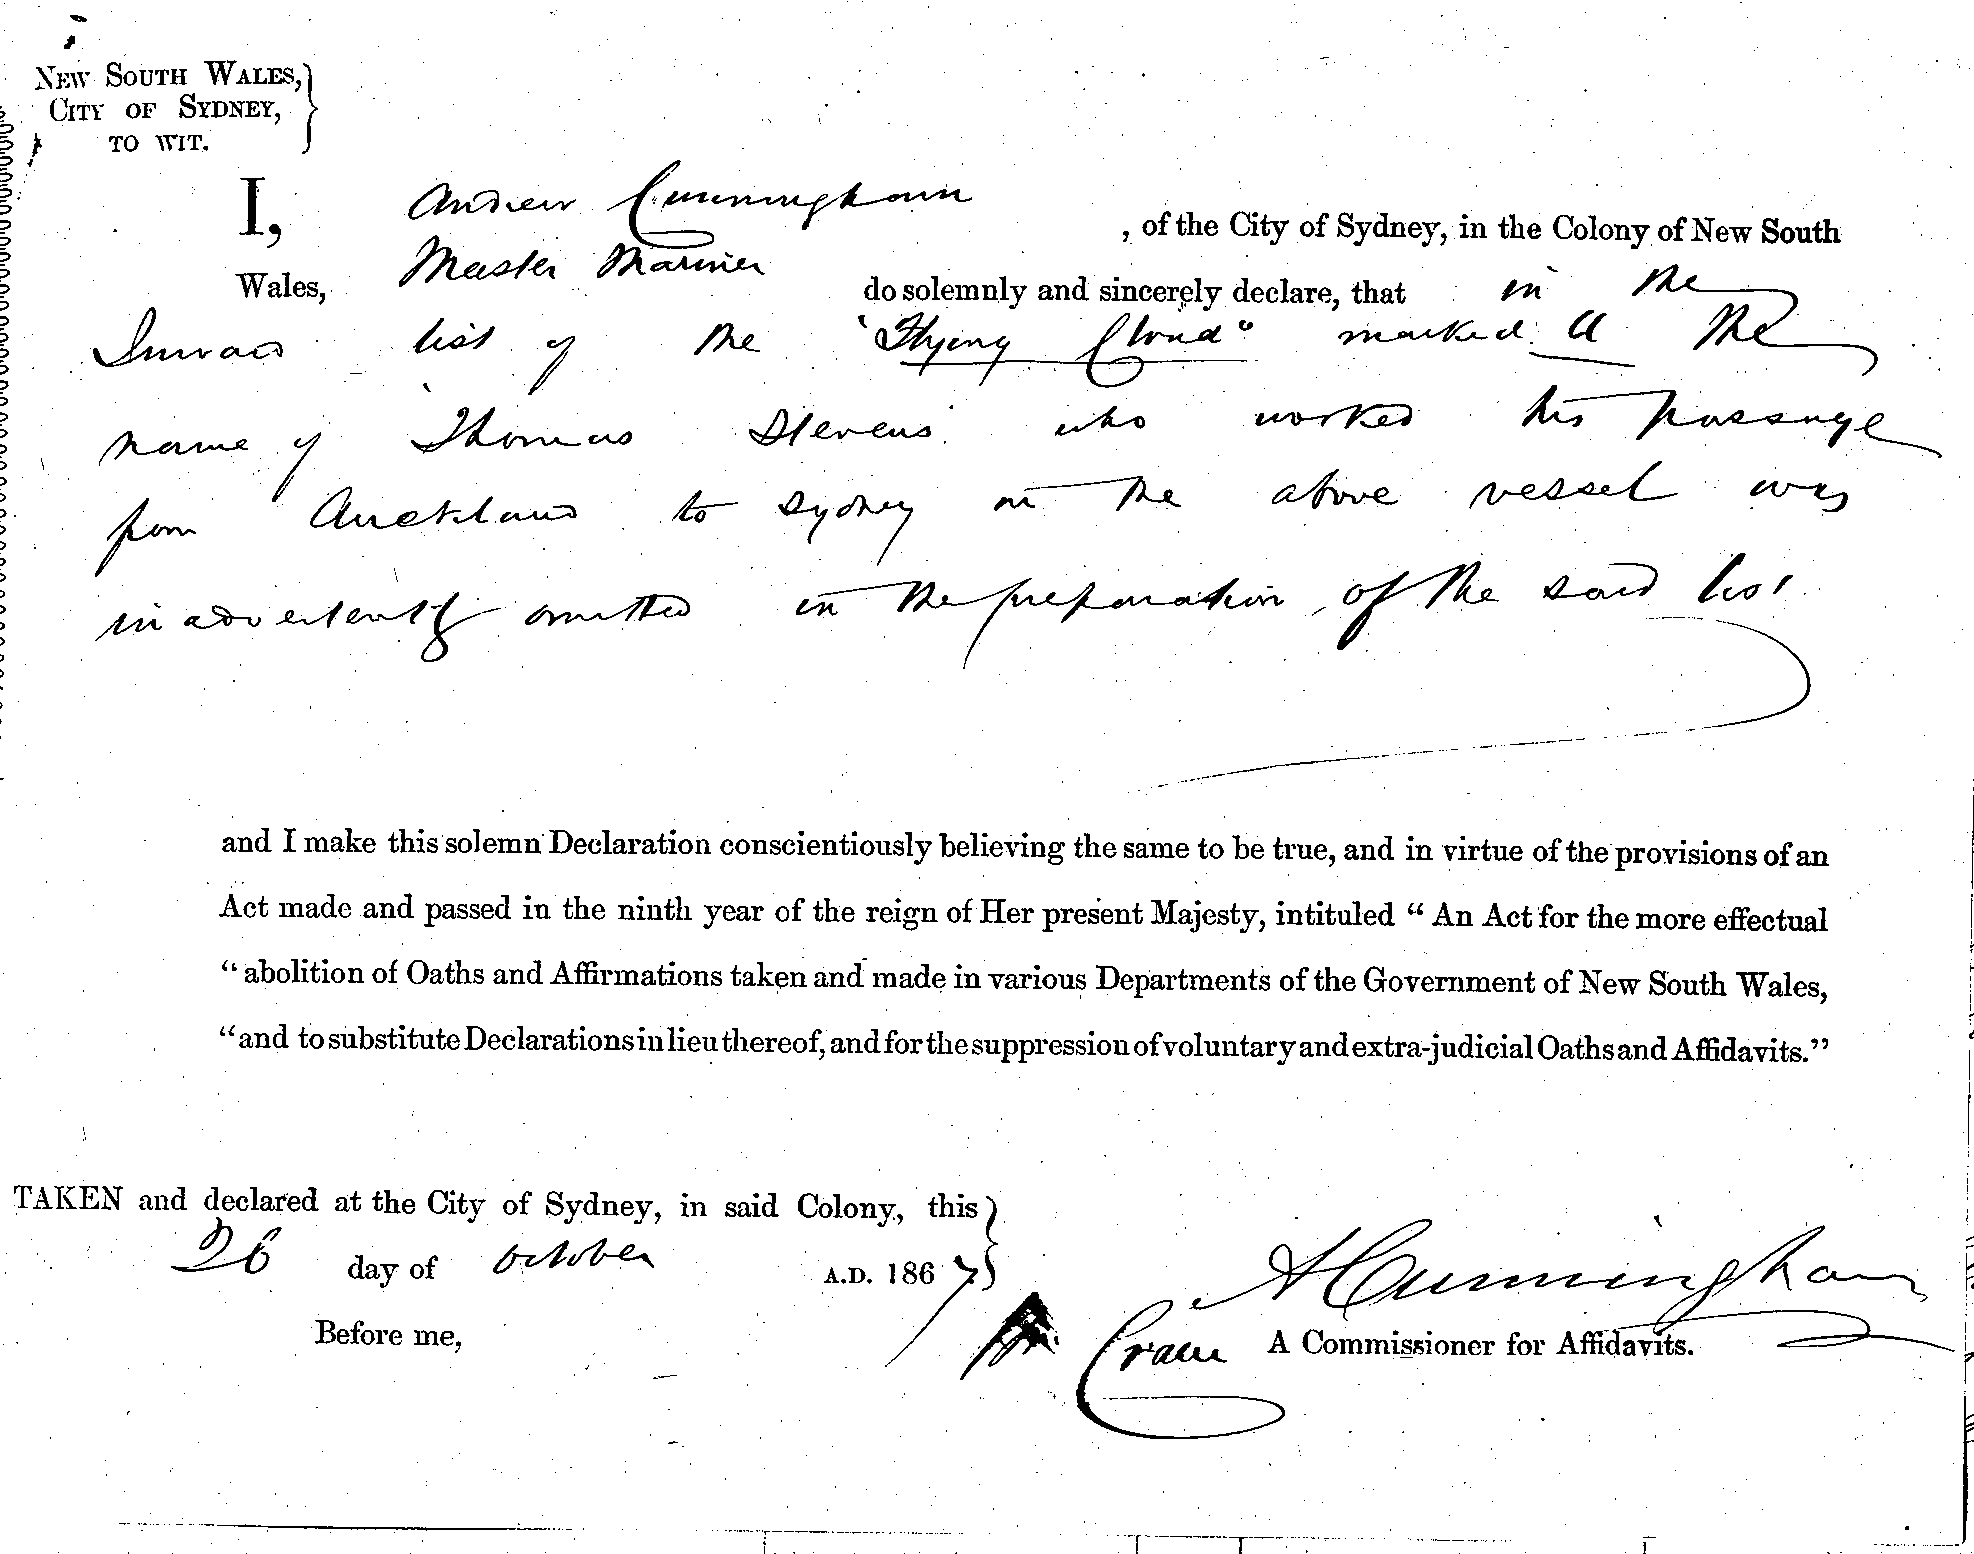 NEW SOUTH WALES,
CITY OF SYDNEY,
TO WIT.
I, Andrew Cunningham, of the City of Sydney, in the Colony of New South
Wales, Master Mariner do solemnly and sincerely declare, that in the
Inward list of the "Flying Cloud" marked A the
name of Thomas Stevens who worked his passage
from Auckland to Sydney in the above vessel was
inadvertently omitted in the preparation of the said list
and I make this solemn Declaration conscientiously believing the same to be true, and in virtue of the provisions of an
Act made and passed in the ninth year of the reign of Her present Majesty, intituled "An Act for the more effectual
"abolition of Oaths and Affirmations taken and made in various Departments of the Government of New South Wales,
"and to substitute Declarations in lieu thereof, and for the suppression of voluntary and extra-judicial Oaths and Affidavits."
TAKEN and declared at the City of Sydney, in said Colony, this
26 day of October A.D. 1867
A Cunningham
Before me,
Crane A Commissioner for Affidavits.